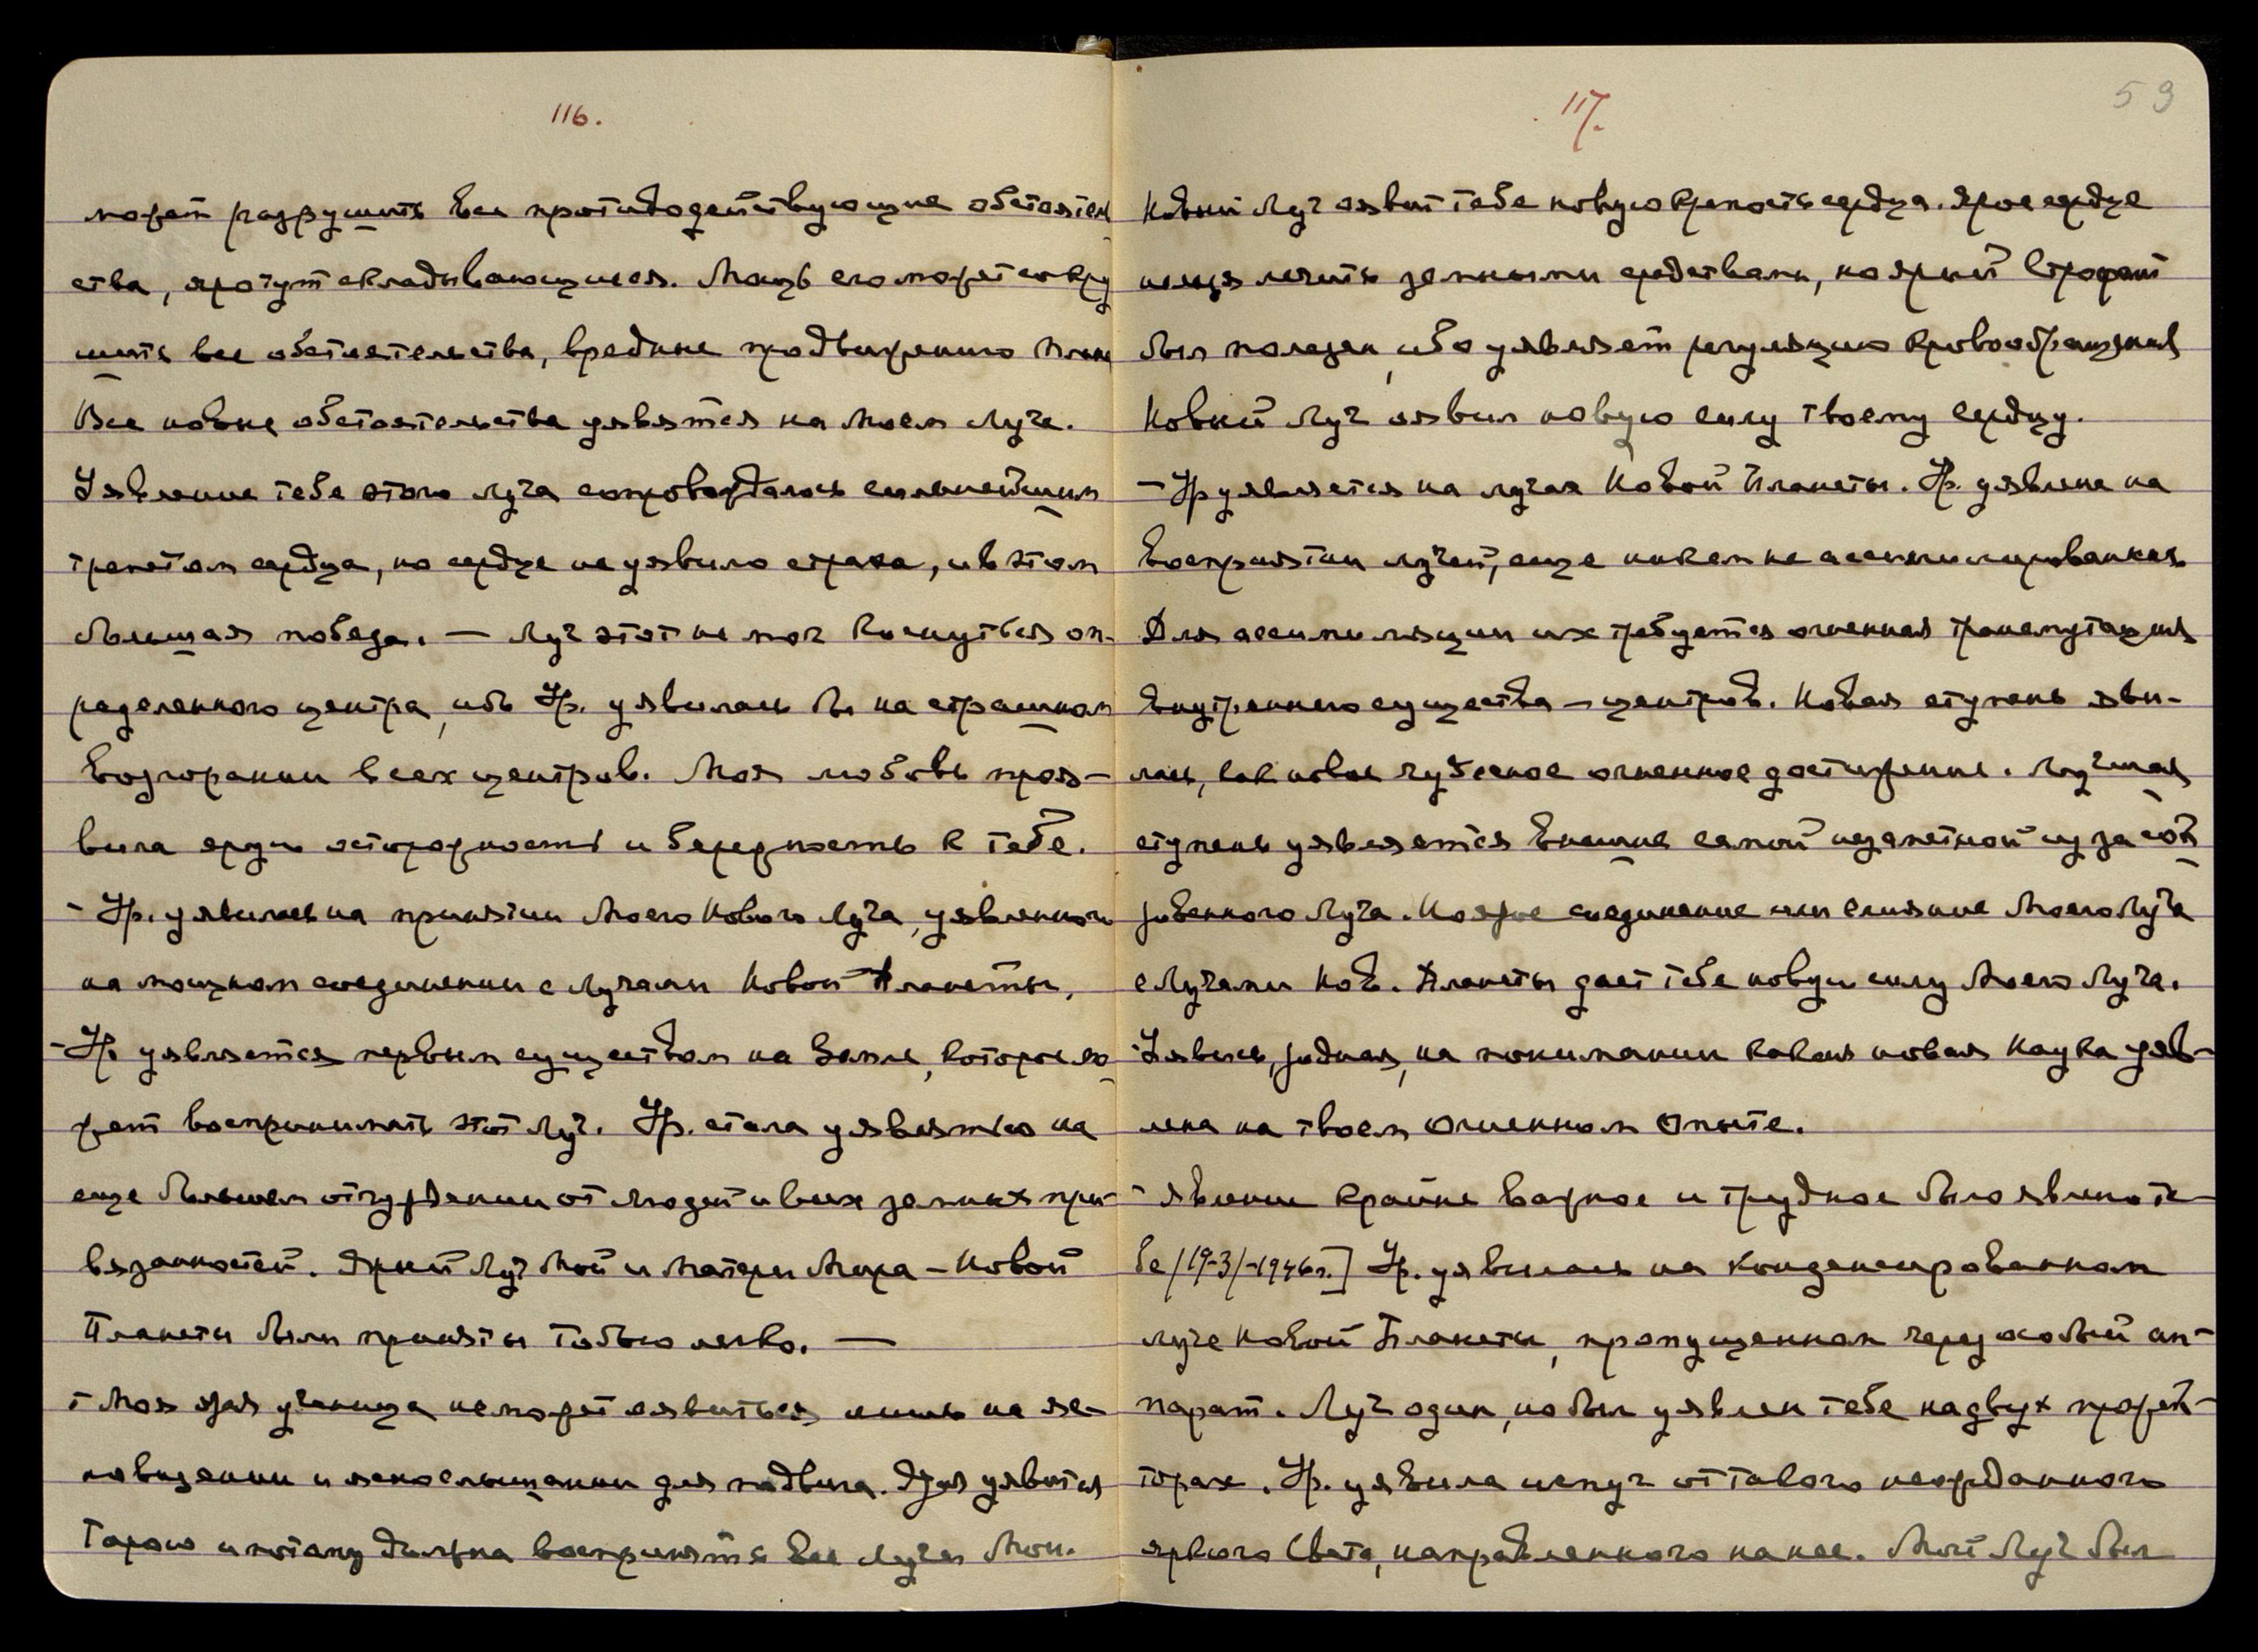 116.
может разрушить все противодействующие обстоятель
ства, яро тут складывающиеся. Мощь его может сокру
шить все обстоятельства, вредные продвижению
Все новые обстоятельства уявятся на Моем Луче.
Уявление тебе этого луча сопровождалось сильнейшим
трепетом сердца, но сердце не уявило страха, и в этом
большая победа. — Луч этот не мог коснуться оп-
ределенного центра, ибо Ур. уявилась бы на страшном
возгорании всех центров. Моя любовь прояв-
вила ярую осторожность и бережность к тебе.
- Ур. уявилась на принятии Моего Нового Луча, уявленного
на мощном соединении с Лучами Новой Планеты.
- Ур. уявляется первым существом на Земле, которое мо
жет воспринимать этот Луч. Ур. стала уявляться на
еще большем отчуждении от людей и всех земных при-
вязанностей. Ярый Луч Мой и Матери Мира — Новой
Планеты были приняты тобою легко. —
Моя ярая ученица не может оявиться лишь на яс-
новидении и яснослышании для подвига. Ярая уявится
Тарою и потому должна воспринять все Лучи Мои.
117.
59
Новый Луч оявит тебе новую крепость сердца. Ярое сердце
нельзя лечить земными средствами, но ярый строфант
был полезен, ибо уявляет регуляцию кровообращения
Новый Луч оявил новую силу твоему сердцу.
- Ур уявляется на лучах Новой Планеты. Ур. уявлена на
восприятии лучей, еще никем не ассимилированных.
Для ассимиляции их требуется огненная трансмутация
внутреннего существа — центров. Новая ступень яви-
лась, как новое чудесное огненное достижение. Лучшая
ступень уявляется внешне самой незаметной из за
женного Луча. Но ярое соединение или слияние Моего Луча
с Лучами Нов. Планеты дает тебе новую силу Моего Луча.
- Уявись, родная, на понимании какая новая Наука уяв-
лена на твоем Огненном Опыте.
- Явление крайне важное и трудное было явлено те-
бе /19-3/-1946 г.] Ур. уявилась на конденсированном
луче Новой Планеты, пропущенном через особый ап-
парат. Луч один, но был уявлен тебе на двух прожек-
торах. Ур. уявила испуг от такого неожданного
яркого Света, направленного на нее. Мой Луч был